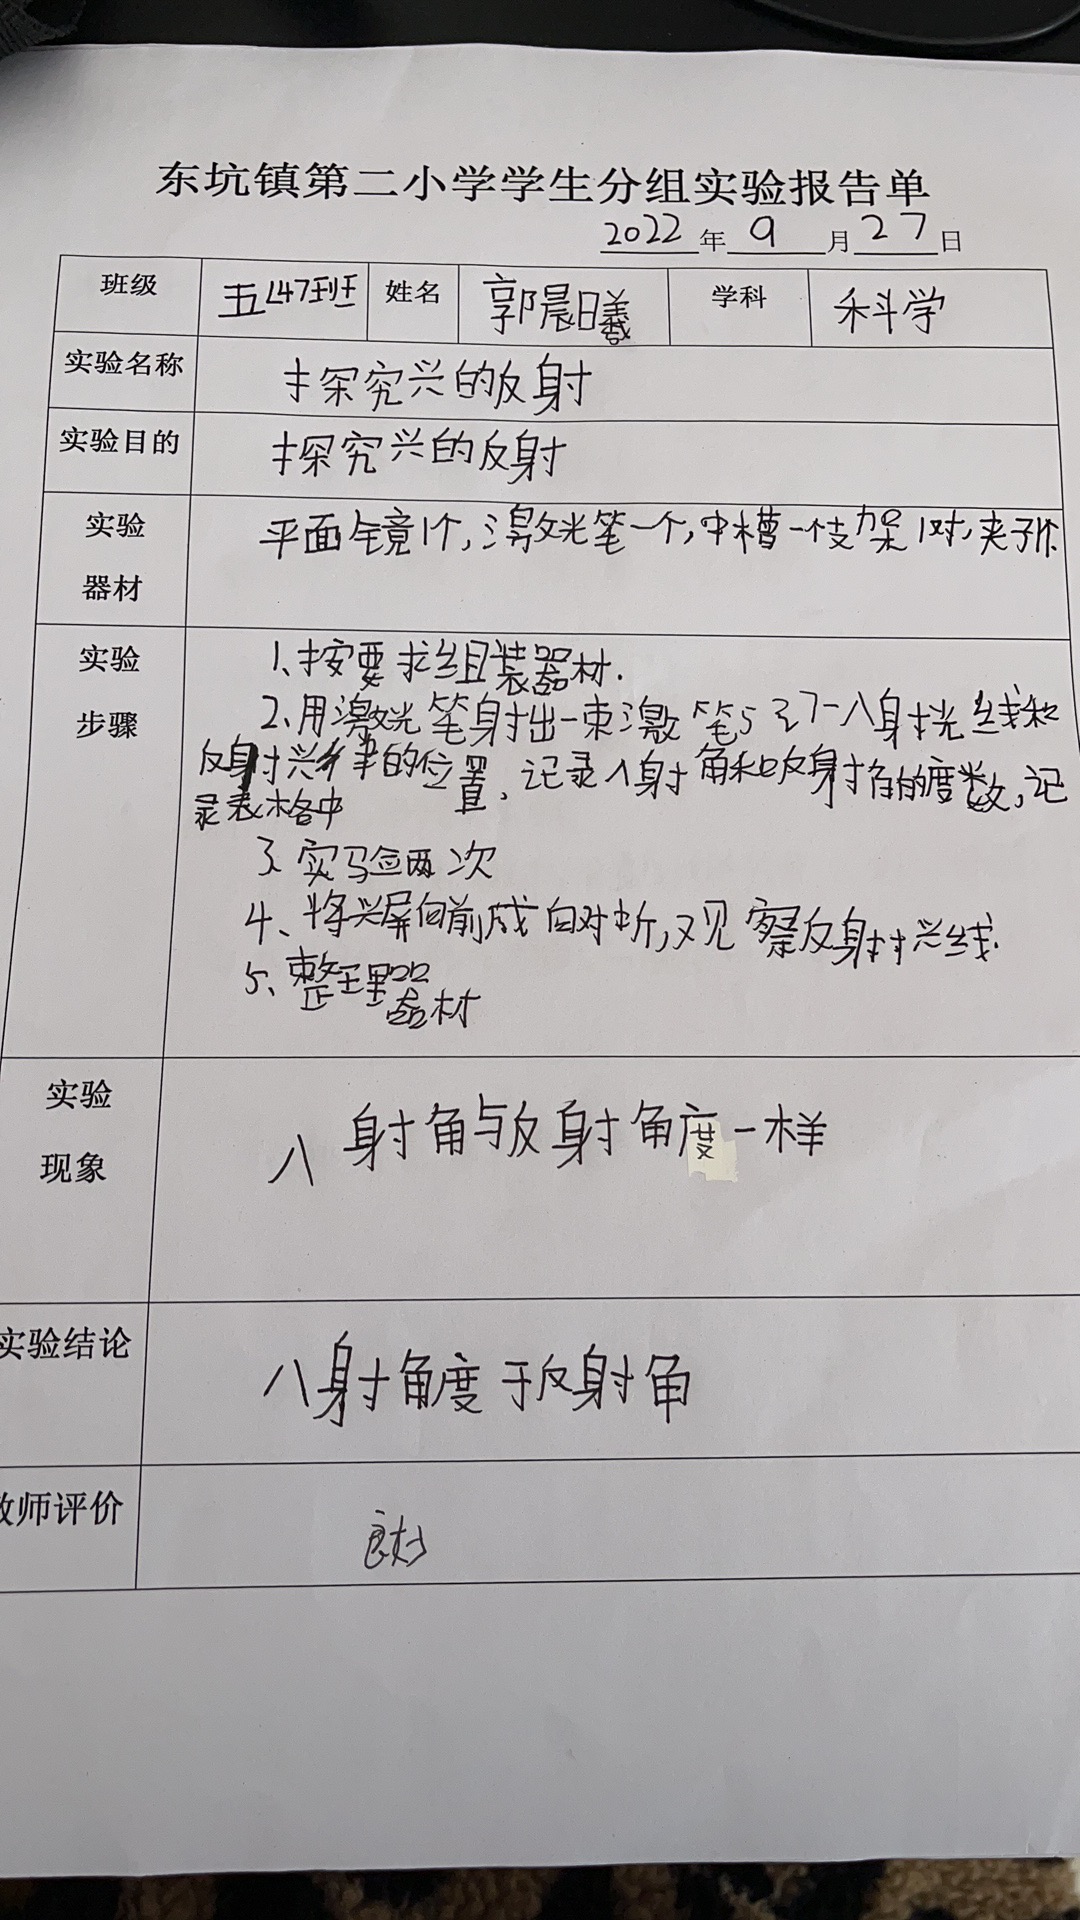 东坑镇第二小学学生分组实验报告单
2022年9月27日
班级 五(4)班 姓名 郭晨曦 学科 科学
实验名称 探究光的反射
实验目的 探究光的反射
实验 平面镜1个,激光笔一个,中槽一个支架1对,夹子
器材
实验 1、按要求组装器材.
步骤 2、用激光笔射出一束激 笔 入射光线和
反射光 的位置,记录入射角和反射角的度数,记
录表格中
3、实验两次
4、将光屏向前或向对折,观察反射光线.
5、整理器材
实验
现象 入射角与反射角度一样
实验结论 入射角度于反射角
教师评价 良好